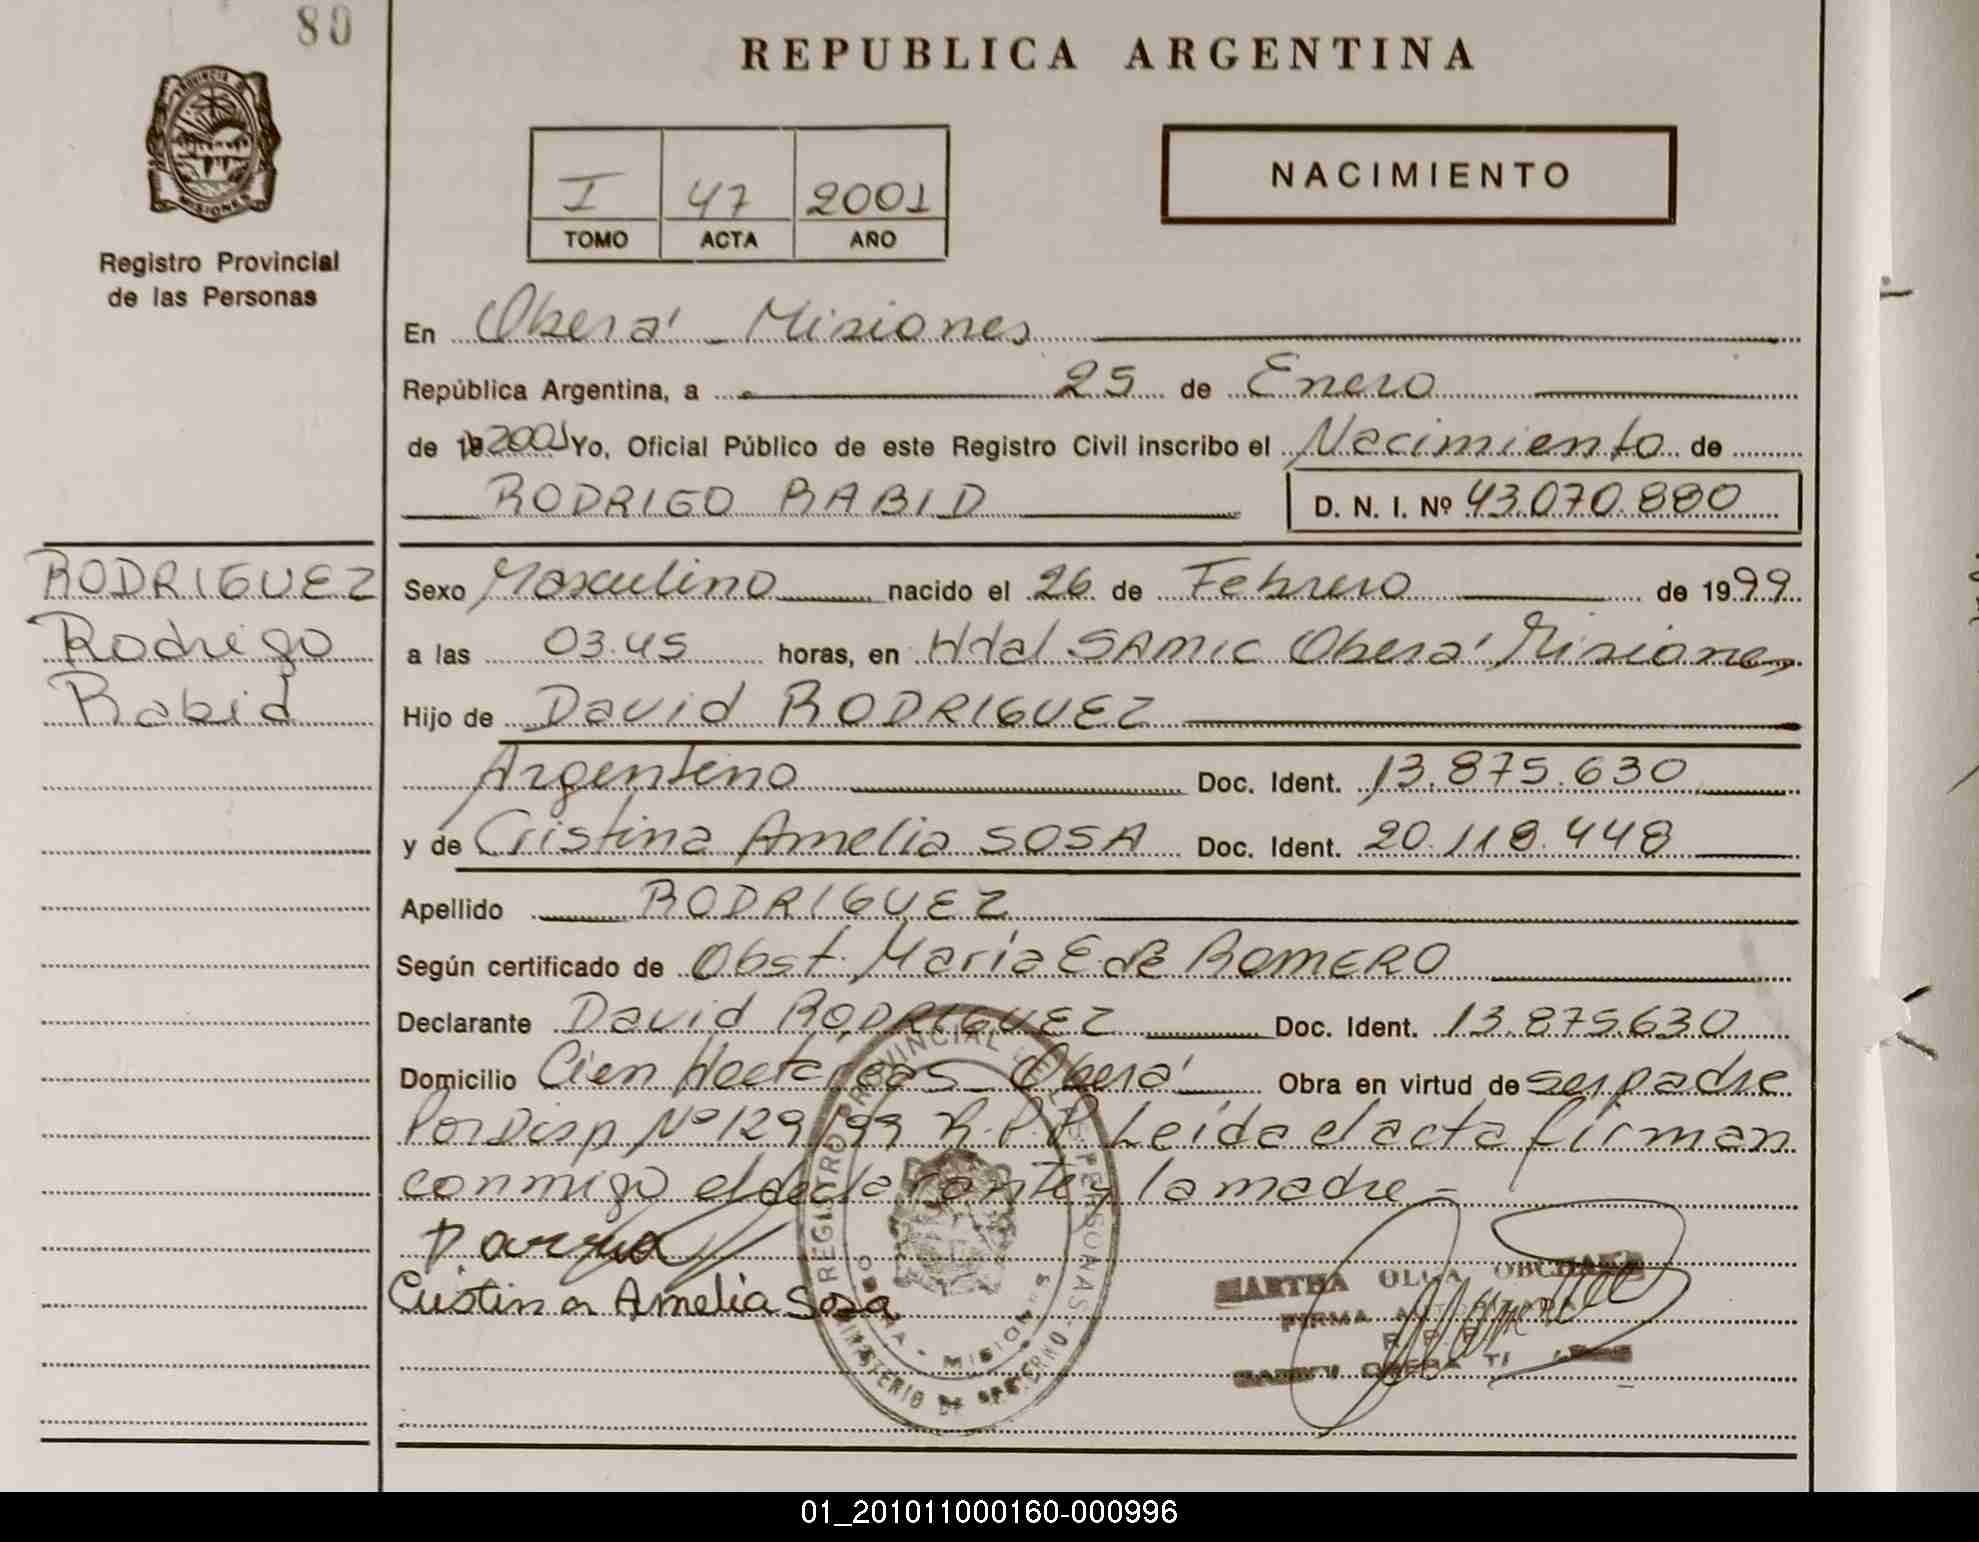 80
REPUBLICA ARGENTINA
PROVINCIA
MISIONES
Registro Provincial
de las Personas
I 47 2001
TOMO ACTA AÑO
NACIMIENTO
En Oberá - Misiones
República Argentina, a 25 de Enero
de 19 2001 Yo, Oficial Público de este Registro Civil inscribo el Nacimiento de
RODRIGO RABID D. N. I. Nº 43.070.880
RODRIGUEZ
Rodrigo
Rabid
Sexo Masculino nacido el 26 de Febrero de 1999
a las 03.45 horas, en Htal SAMIC Oberá Misiones
Hijo de David RODRIGUEZ
Argentino Doc. Ident. 13.875.630
y de Cristina Amelia SOSA Doc. Ident. 20.118.448
Apellido RODRIGUEZ
Según certificado de Obst. María E. de ROMERO
Declarante David RODRIGUEZ Doc. Ident. 13.875.630
Domicilio Cien Hectareas - Oberá Obra en virtud de ser padre
Por Disp Nº 129/99 R.P.P. Leída el acta firman
conmigo el declarante y la madre -
Cristina Amelia Sosa
REGISTRO PROVINCIAL DE LAS PERSONAS
MINISTERIO DE GOBIERNO
OBERA - MISIONES
MARTHA OLGA
FIRMA AUTORIZADA
R. P. P.
OBERA
01_201011000160-000996